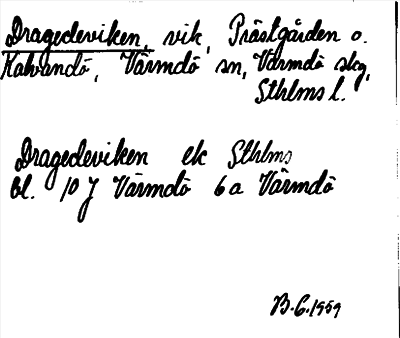 Dragedeviken, vik, Prästgården o.
Kalvandö, Värmdö sn, Värmdö skg,
Sthlms l.
Dragedeviken ek Sthlms
bl. 10 J Värmdö 6 a Värmdö
B.G. 1959